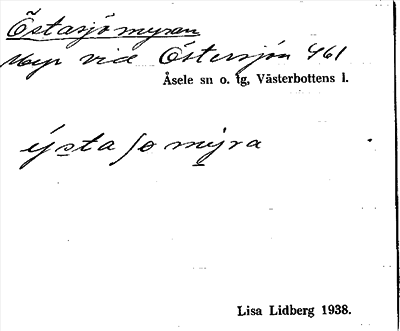 Östasjömyran
Myr vid Östersjön 461
Åsele sn o. tg, Västerbottens l.
ýsta ſo myra
Lisa Lidberg 1938.